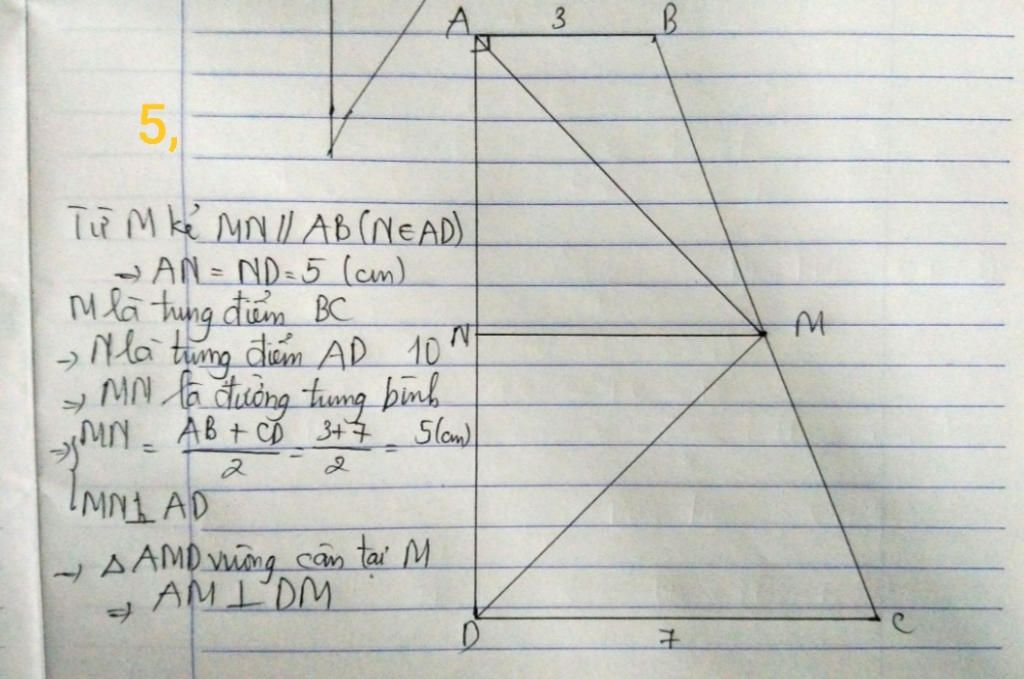 A 3 B
5,
Từ M kẻ MN // AB (N ∈ AD)
→ AN = ND = 5 (cm)
M là tung điểm BC
→ N là tung điểm AD 10 N M
⇒ MN là đường tung bình
⇒ { MN = \frac{AB + CD}{2} = \frac{3+7}{2} = 5 (cm)
MN ⊥ AD
→ Δ AMD vuông cân tại M
⇒ AM ⊥ DM
D 7 C